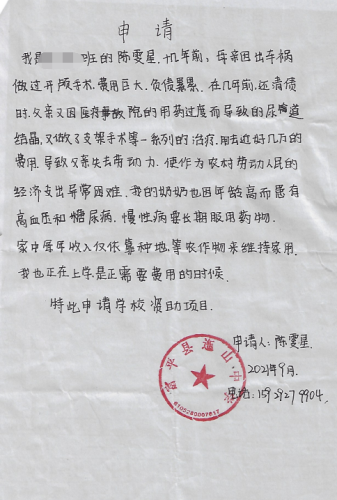 申请
我是 班的陈雯星,几年前,母亲因出车祸
做过开颅手术,费用巨大,负债累累。在几年前,还清债
时,父亲又因医疗事故院的用药过度而导致的尿道
结晶,又做了支架手术等一系列的治疗,用去近好几万的
费用,导致父亲失去劳动力,便作为农村劳动人民的
经济支出异常困难,我的奶奶也因年龄高而患有
高血压和糖尿病,慢性病要长期服用药物。
家中每年收入仅依靠种地,等农作物来维持家用。
我也正在上学是正需要费用的时候。
特此申请学校资助项目。
申请人:陈雯星
2021年9月.
电话:15929279904.
富平县 山中学